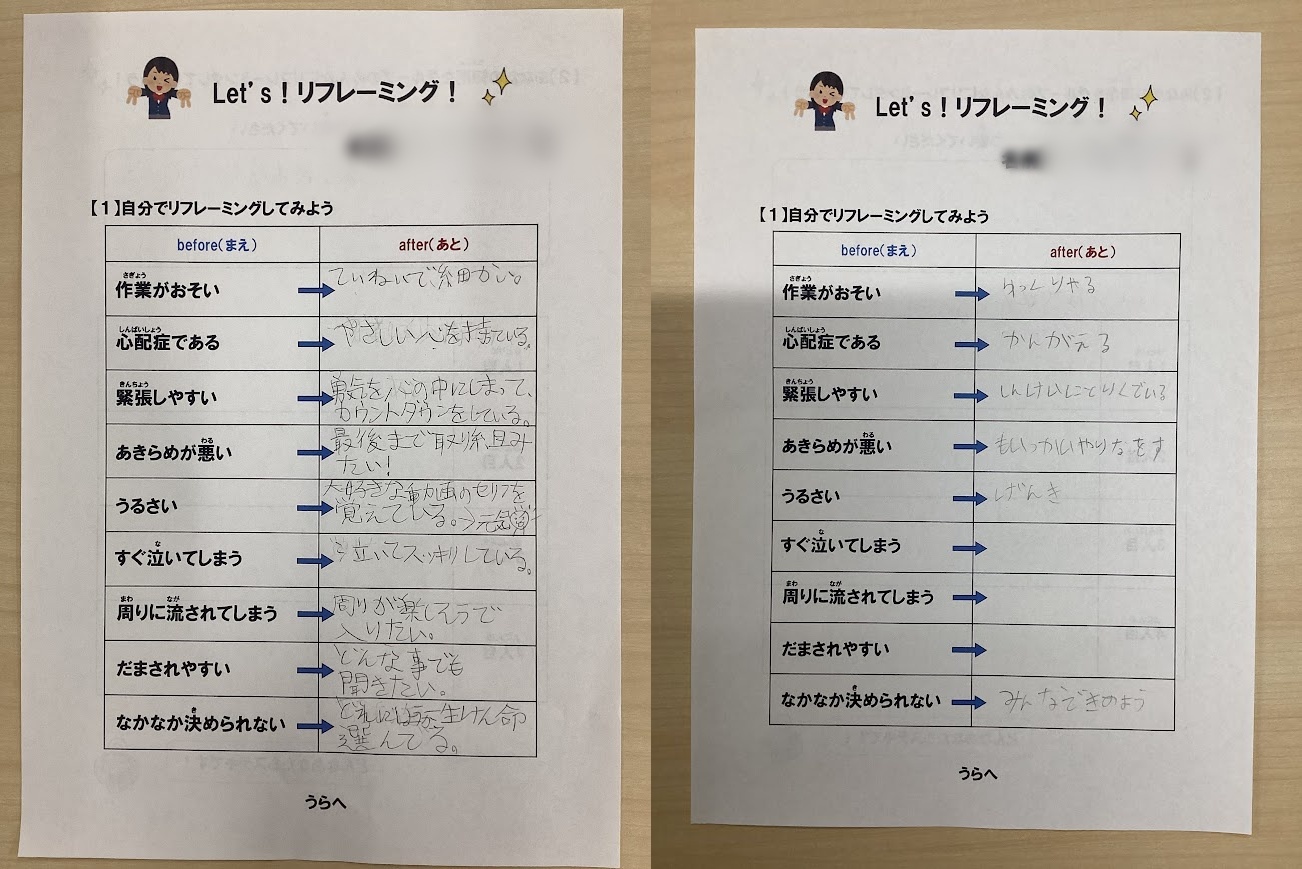 Let's！リフレーミング！
【1】自分でリフレーミングしてみよう
before(まえ) after(あと)
作業がおそい ていねいで細かい。
さぎょう
心配症である やさしい心を持っている。
しんぱいしょう
緊張しやすい 勇気を心の中にしまって、
きんちょう
カウントダウンをしている。
あきらめが悪い 最後まで取り組み
わる
たい！
うるさい 大好きな動画のセリフを
覚えている。→元気
すぐ泣いてしまう 泣いてスッキリしている。
な
周りに流されてしまう 周りが楽しそうで
まわ なが
入りたい。
だまされやすい どんな事でも
聞きたい。
なかなか決められない どれにしようか一生けん命
き
選んでる。
うらへ
Let's！リフレーミング！
【1】自分でリフレーミングしてみよう
before(まえ) after(あと)
作業がおそい ゆっくりやる
さぎょう
心配症である かんがえる
しんぱいしょう
緊張しやすい しんけいにとりくでいる
きんちょう
あきらめが悪い もいっかいやりなをす
わる
うるさい げんき
すぐ泣いてしまう
な
周りに流されてしまう
まわ なが
だまされやすい
なかなか決められない みんなできめよう
き
うらへ